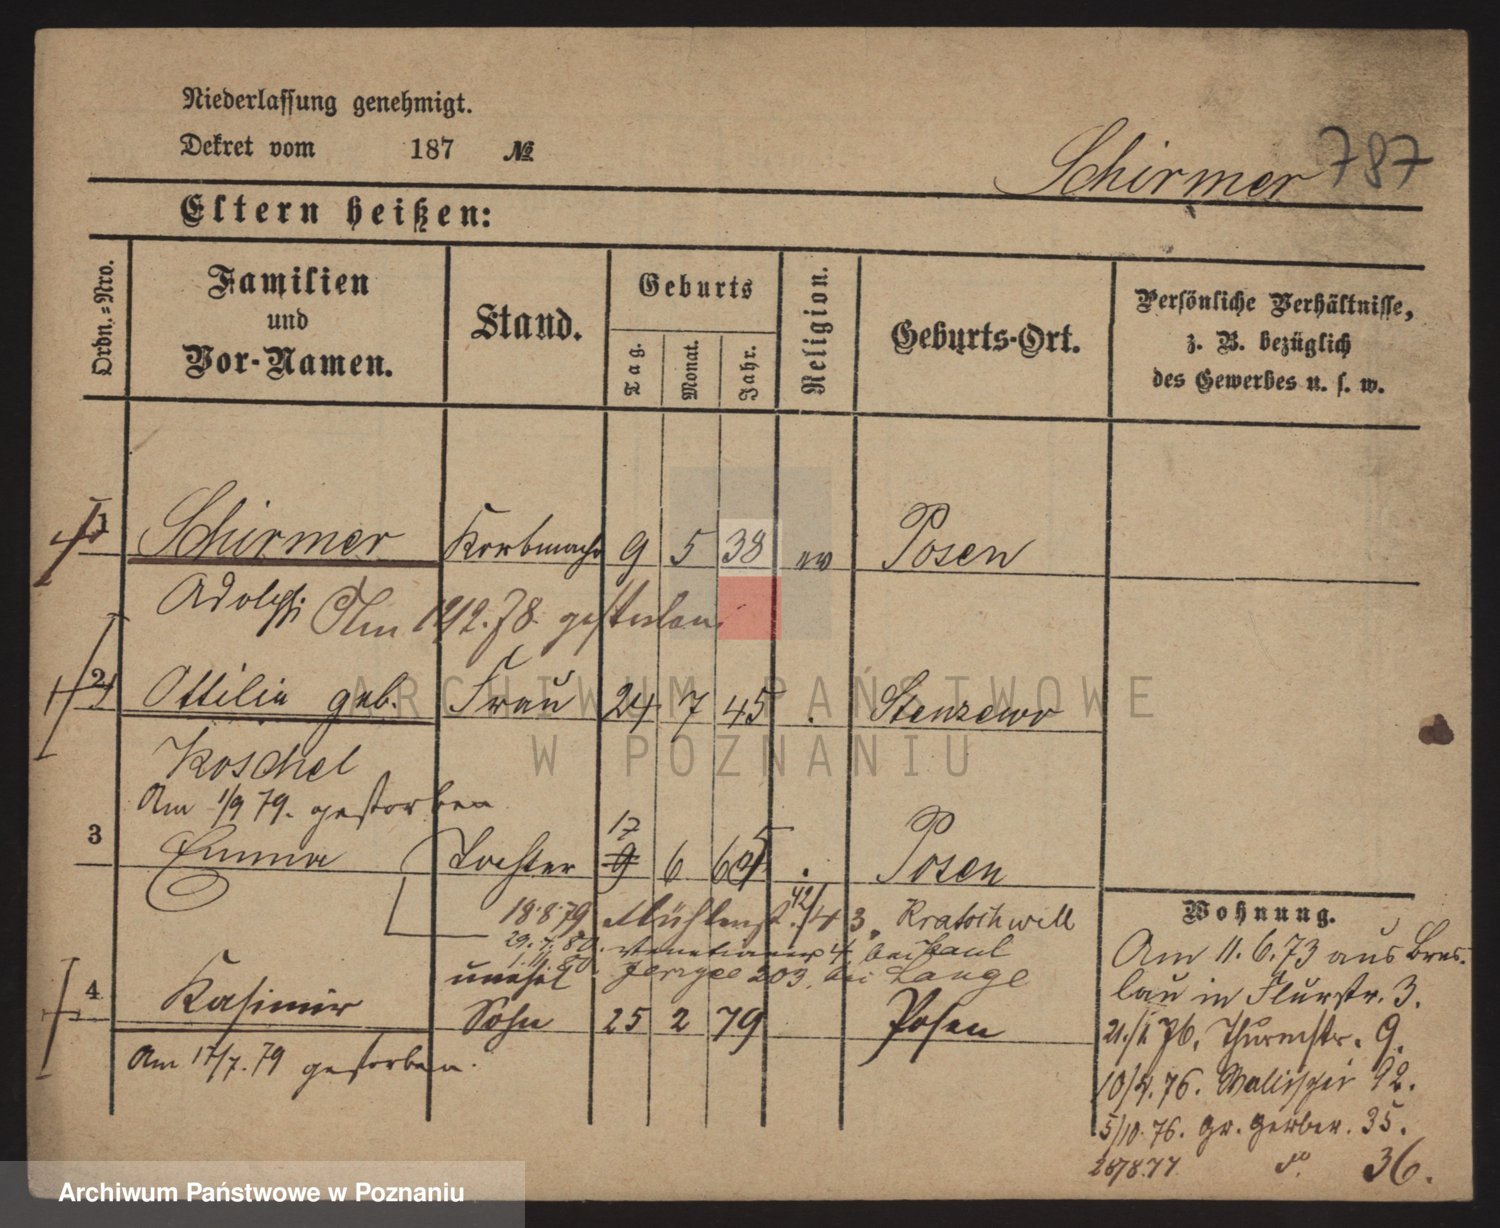 Niederlassung genehmigt.
Dekret vom 187 №
Schirmer 787
Eltern heißen:
Ordn.=Nro.
Familien
und
Vor-Namen.
Stand.
Geburts
Tag.
Monat.
Jahr.
Religion.
Geburts-Ort.
Persönliche Verhältnisse,
z. B. bezüglich
des Gewerbes u. s. w.
1 Schirmer Korbmachr 9 5 38 ev Posen
Adolph Am 1/12. 78. gestorben
2 Ottilie geb. Frau 24 7 45 . Stenzewo
Koschel
Am 1/9 79. gestorben
17
3 Emma Tochter 9 6 65 . Posen
18.8.79 Mühlenst. 3, Kratochwill
29. 7. 80. Venetianer 4 bei Paul
unehel. Jerzyce 203. bei Lange
4 Kasimir Sohn 25 2 79 Posen
Am 17/7. 79 gestorben.
Wohnung.
Am 11. 6. 73 aus Bres-
lau in Flurstr. 3.
21./1. 76. Thurmstr. 9.
10/4. 76. Wallischei 92.
5/10. 76. Gr. Gerber. 35.
28/8. 77. do. 36.
ARCHIWUM PAŃSTWOWE
W POZNANIU
Archiwum Państwowe w Poznaniu